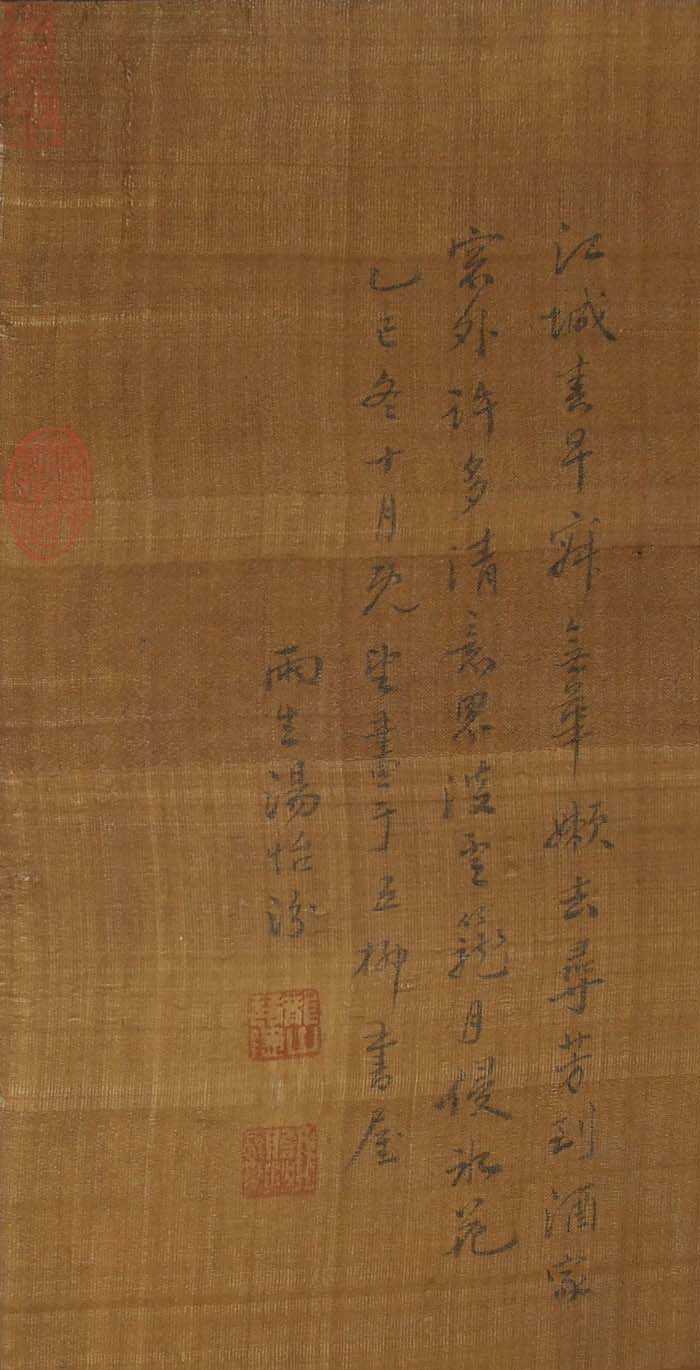 江城春早華嬾去尋芳到酒家
窓外許多清意思淡雲籠月侵花
乙巳冬十月既望畫于五柳書屋
雨生湯貽汾